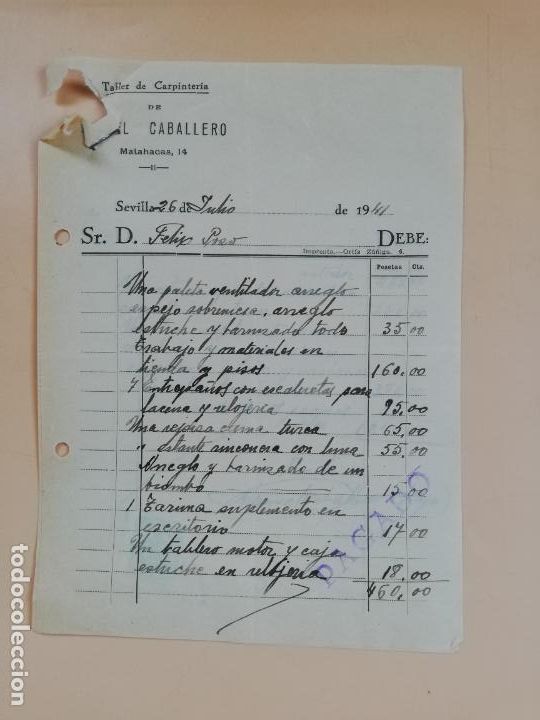 Taller de Carpintería
DE
EL CABALLERO
Matahacas, 14
Sevilla 26 de Julio de 1941
Sr. D. Felix Pozo DEBE:
Imprenta.-Ortiz Zúñiga, 6.
Pesetas Cts.
Una paleta ventilador arreglo
espejo sobremesa, arreglo
estuche y barnizado todo 35.00
Trabajo y materiales en
tienda y pisos 160.00
7 Entrepaños con escaluetas para
lacena y relojeria 95.00
Una repisa cama turca 65.00
" estante rinconera con luna 55.00
Arreglo y barnizado de un
biombo 15.00
1 Tarima suplemento en
escritorio 17.00
Un tablero motor y caja
estuche en relojeria 18.00
460.00
PAGADO
todocoleccion.net